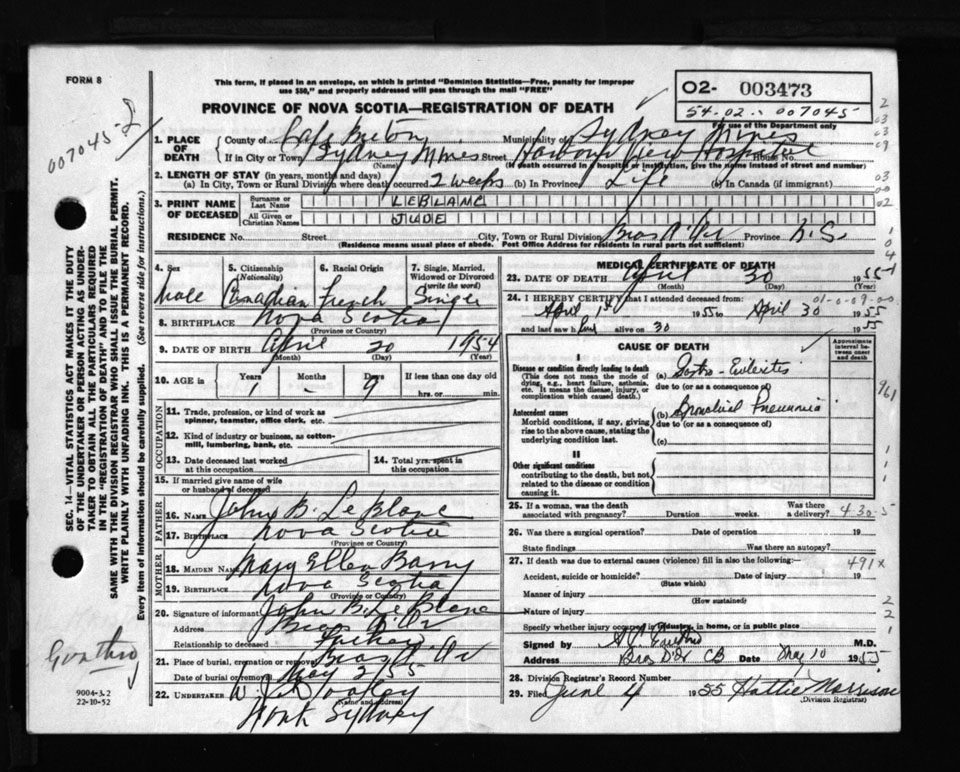 FORM 8
This form, if placed in an envelope, on which is printed "Dominion Statistics—Free, penalty for improper
use $50," and properly addressed will pass through the mail "FREE"
PROVINCE OF NOVA SCOTIA—REGISTRATION OF DEATH
02- 003473
54-02-007045
For use of the Department only
007045-2
1. PLACE OF DEATH
County of Cape Breton Municipality of Sydney Mines
If in City or Town Sydney Mines Street Harbour View Hospital House No.
(Name) (If death occurred in hospital or institution, give name instead of street and number)
2. LENGTH OF STAY (in years, months and days)
(a) In City, Town or Rural Division where death occurred 2 weeks (b) In Province Life (c) In Canada (if immigrant)
3. PRINT NAME OF DECEASED
Surname or Last Name LEBLANC
All Given or Christian Names JUDE
RESIDENCE No. Street City, Town or Rural Division Bras D'Or Province N.S.
(Residence means usual place of abode. Post Office Address for residents in rural parts not sufficient)
4. Sex Male
5. Citizenship (Nationality) Canadian
6. Racial Origin French
7. Single, Married, Widowed or Divorced (write the word) Single
8. BIRTHPLACE Nova Scotia
(Province or Country)
9. DATE OF BIRTH April 20 1954
(Month) (Day) (Year)
10. AGE in Years Months Days If less than one day old
1 - 9 hrs. or min.
OCCUPATION
11. Trade, profession, or kind of work as spinner, teamster, office clerk, etc.
12. Kind of industry or business, as cotton-mill, lumbering, bank, etc.
13. Date deceased last worked at this occupation
14. Total yrs. spent in this occupation
15. If married give name of wife or husband of deceased
FATHER
16. NAME John B. LeBlanc
17. BIRTHPLACE Nova Scotia
(Province or Country)
MOTHER
18. MAIDEN NAME Mary Ellen Barry
19. BIRTHPLACE Nova Scotia
(Province or Country)
20. Signature of informant John B. LeBlanc
Address Bras D'Or
Relationship to deceased Father
21. Place of burial, cremation or removal Bras D'Or
Date of burial or removal May 2/55
22. UNDERTAKER
(Name and Address)
North Sydney
9004-3.2
22-10-52
SEC. 14—VITAL STATISTICS ACT MAKES IT THE DUTY
OF THE UNDERTAKER OR PERSON ACTING AS UNDERTAKER
TO OBTAIN ALL THE PARTICULARS REQUIRED
IN THE "REGISTRATION OF DEATH" AND TO FILE THE
SAME WITH THE DIVISION REGISTRAR WHO SHALL ISSUE THE BURIAL PERMIT.
WRITE PLAINLY WITH UNFADING INK. THIS IS A PERMANENT RECORD.
Every item of information should be carefully supplied. (See reverse side for instructions.)
MEDICAL CERTIFICATE OF DEATH
23. DATE OF DEATH April 30 1955
(Month) (Day) (Year)
24. I HEREBY CERTIFY that I attended deceased from:
01-0-09-00
April 1st 1955 to April 30 1955
and last saw him alive on 30 1955
CAUSE OF DEATH
Approximate interval between onset and death
I
Disease or condition directly leading to death
(This does not mean the mode of dying, e.g., heart failure, asthenia, etc. It means the disease, injury, or complication which caused death.)
(a) Gastro-Enteritis
due to (or as a consequence of)
Antecedent causes
Morbid conditions, if any, giving rise to the above cause, stating the underlying condition last.
(b) Bronchial Pneumonia
due to (or as a consequence of)
(c)
II
Other significant conditions
contributing to the death, but not related to the disease or condition causing it.
25. If a woman, was the death associated with pregnancy? Duration weeks. Was there a delivery?
430-5
26. Was there a surgical operation? Date of operation 19
State findings Was there an autopsy?
27. If death was due to external causes (violence) fill in also the following:
491x
Accident, suicide or homicide? Date of injury 19
(State which)
Manner of injury
(How sustained)
Nature of injury
Specify whether injury occurred in industry, in home, or in public place
Signed by M.D.
Address Bras D'Or CB Date May 10 1955
28. Division Registrar's Record Number
29. Filed June 4 1955 Hattie Morrison
(Division Registrar)